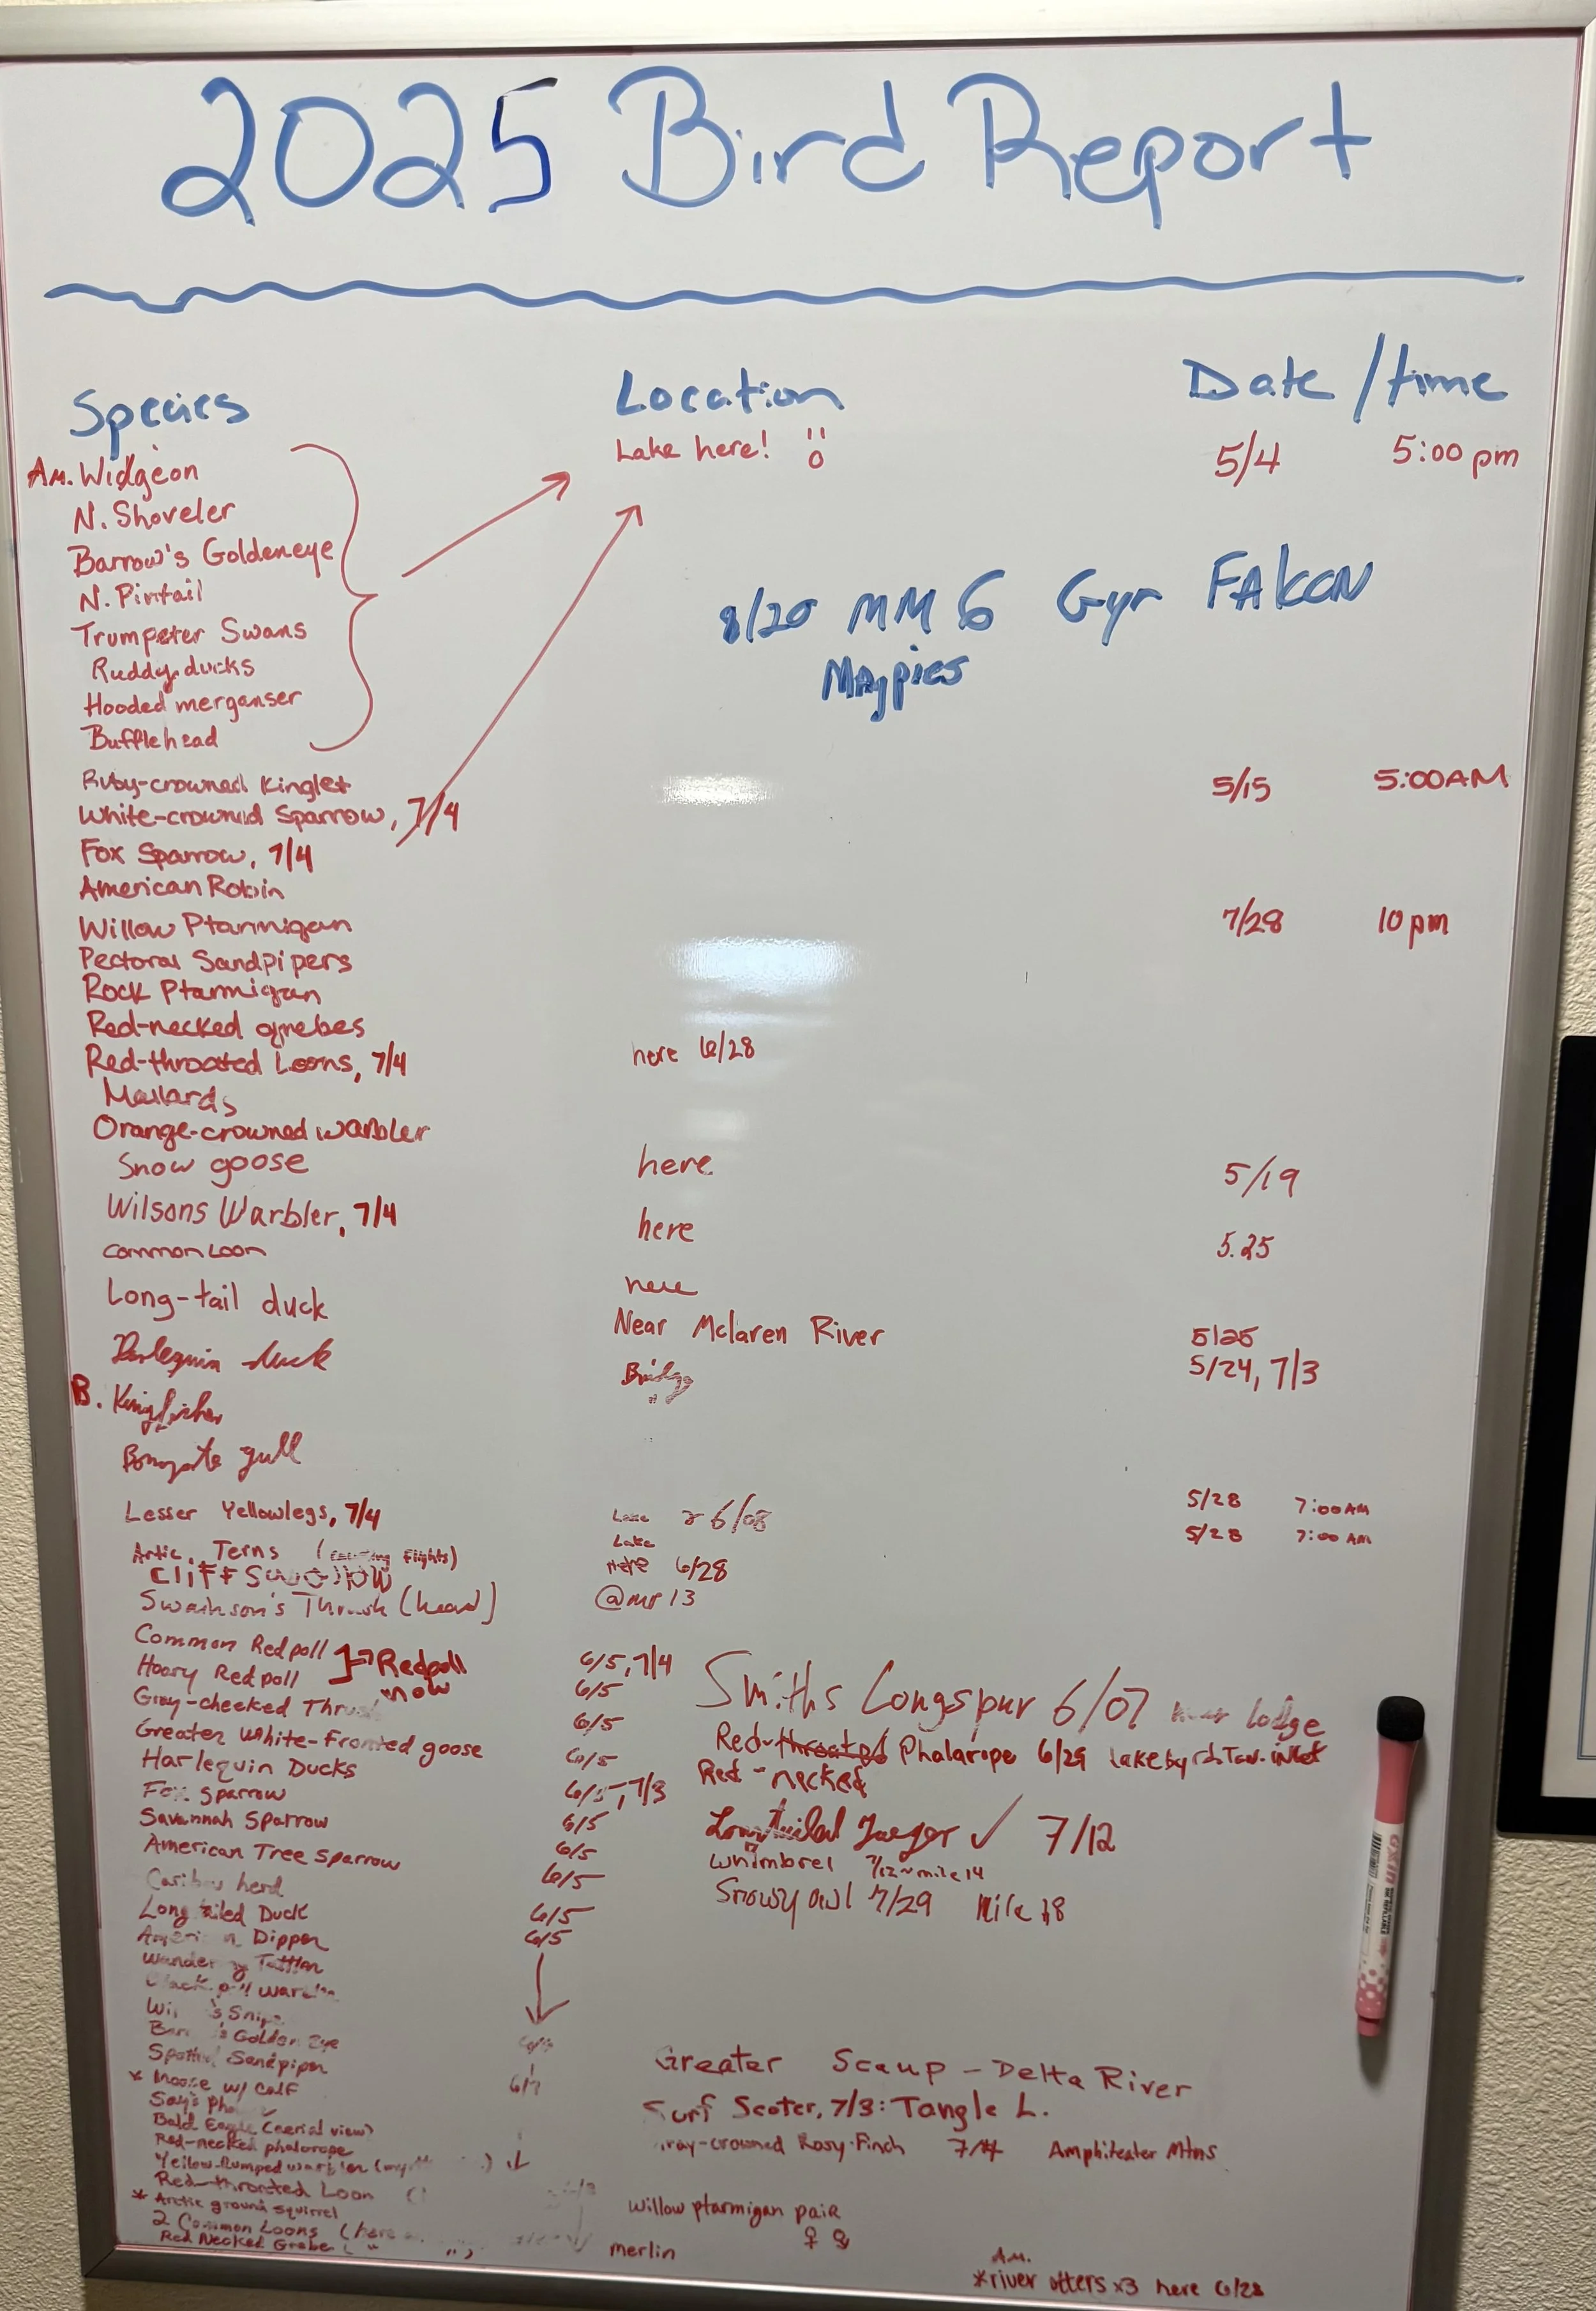 2025 Bird Report
Species Location Date/time
Lake here! 5/4 5:00 pm
Am. Widgeon
N. Shoveler
Barrow's Goldeneye
N. Pintail
Trumpeter Swans
Ruddy ducks
Hooded merganser
Bufflehead
8/20 MM 6 Gyr FAlcon
Magpies
Ruby-crowned Kinglet 5/15 5:00AM
White-crowned Sparrow, 7/4
Fox Sparrow, 7/4
American Robin
Willow Ptarmigan 7/28 10pm
Pectoral Sandpipers
Rock Ptarmigan
Red-necked grebes
Red-throated Loons, 7/4 here 6/28
Mallards
Orange-crowned warbler
Snow goose here 5/19
Wilsons Warbler, 7/4 here 5.25
Common Loon here
Long-tail duck Near Mclaren River 5/25
Harlequin duck Bridge 5/24, 7/3
B. Kingfisher
gull
Lesser Yellowlegs, 7/4 Lake 6/08 5/28 7:00AM
Artic Terns (flights) Lake 5/28 7:00 AM
Cliff Swallow Here 6/28
Swainson's Thrush (heard) @mp 13
Common Redpoll 6/5, 7/4
Hoary Redpoll 6/5
Redpoll now
Gray-cheeked Thrush 6/5
Greater White-Fronted goose 6/5
Harlequin Ducks 6/5, 7/3
Fox sparrow 6/5
Savannah Sparrow 6/5
American Tree sparrow 6/5
Caribou herd
Long tailed Duck 6/5
American Dipper 6/5
Smiths Longspur 6/07 near lodge
Red-throated Phalarope 6/29 lake by inlet
Red-necked
Longtailed Jaeger ✓ 7/12
Whimbrel 7/12 ~ mile 14
Snowy owl 7/29 Mile 18
Wandering Tattler
Blackpoll warbler
Wil's Snipe
Bar's Goldeneye
Spotted Sandpiper
* Moose w/ calf 6/7
Say's
Bald Eagle (aerial view)
Red-necked phalarope
Yellow-Rumped warbler
Red-throated Loon
* Arctic ground squirrel
2 Common Loons (here
Red Necked Grebe
Greater Scaup - Delta River
Surf Scoter, 7/3: Tangle L.
Gray-crowned Rosy-Finch 7/4 Amphiteater Mtns
Willow ptarmigan pair
♀ ♂
merlin
A.M.
*river otters x3 here 6/28